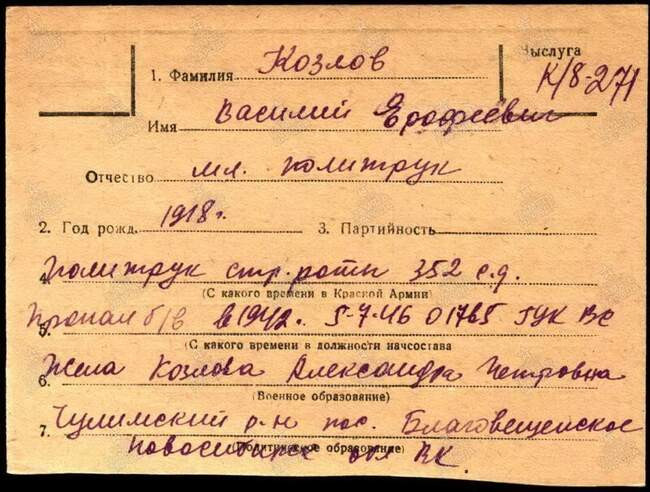 Выслуга
1. Фамилия Козлов
К/8-271
Имя Василий Ерофеевич
Отчество мл. политрук
2. Год рожд. 1918 г. 3. Партийность
4. Политрук стр. роты 352 с.д.
(С какого времени в Красной Армии)
5. Пропал б/в в 1942 г. 5-7-46 01765 ГУК ВС
(С какого времени в должности начсостава
6. Жена Козлова Александра Петровна
(Военное образование)
7. Чулимский р-н пос. Благовещенское
Новосибирск. обл РК
(Политическое образование)